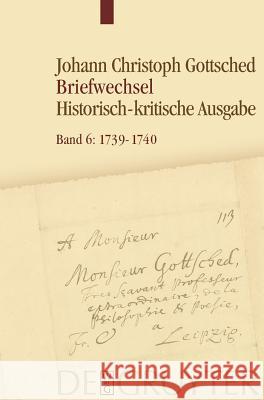 Johann Christoph Gottsched
Briefwechsel
Historisch-kritische Ausgabe
Band 6: 1739-1740
113
A Monsieur
Monsieur Gottsched,
Tres savant Professeur
extraordinaire, de la
Philosophie & Poesie,
Fr. C a Leipzig.
DE GRUYTER